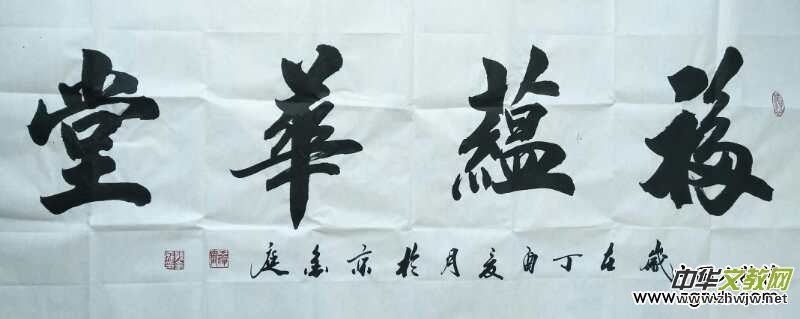 福蘊華堂
歲在丁酉夏月於京庭
中华文教网
www.zhwjw.net